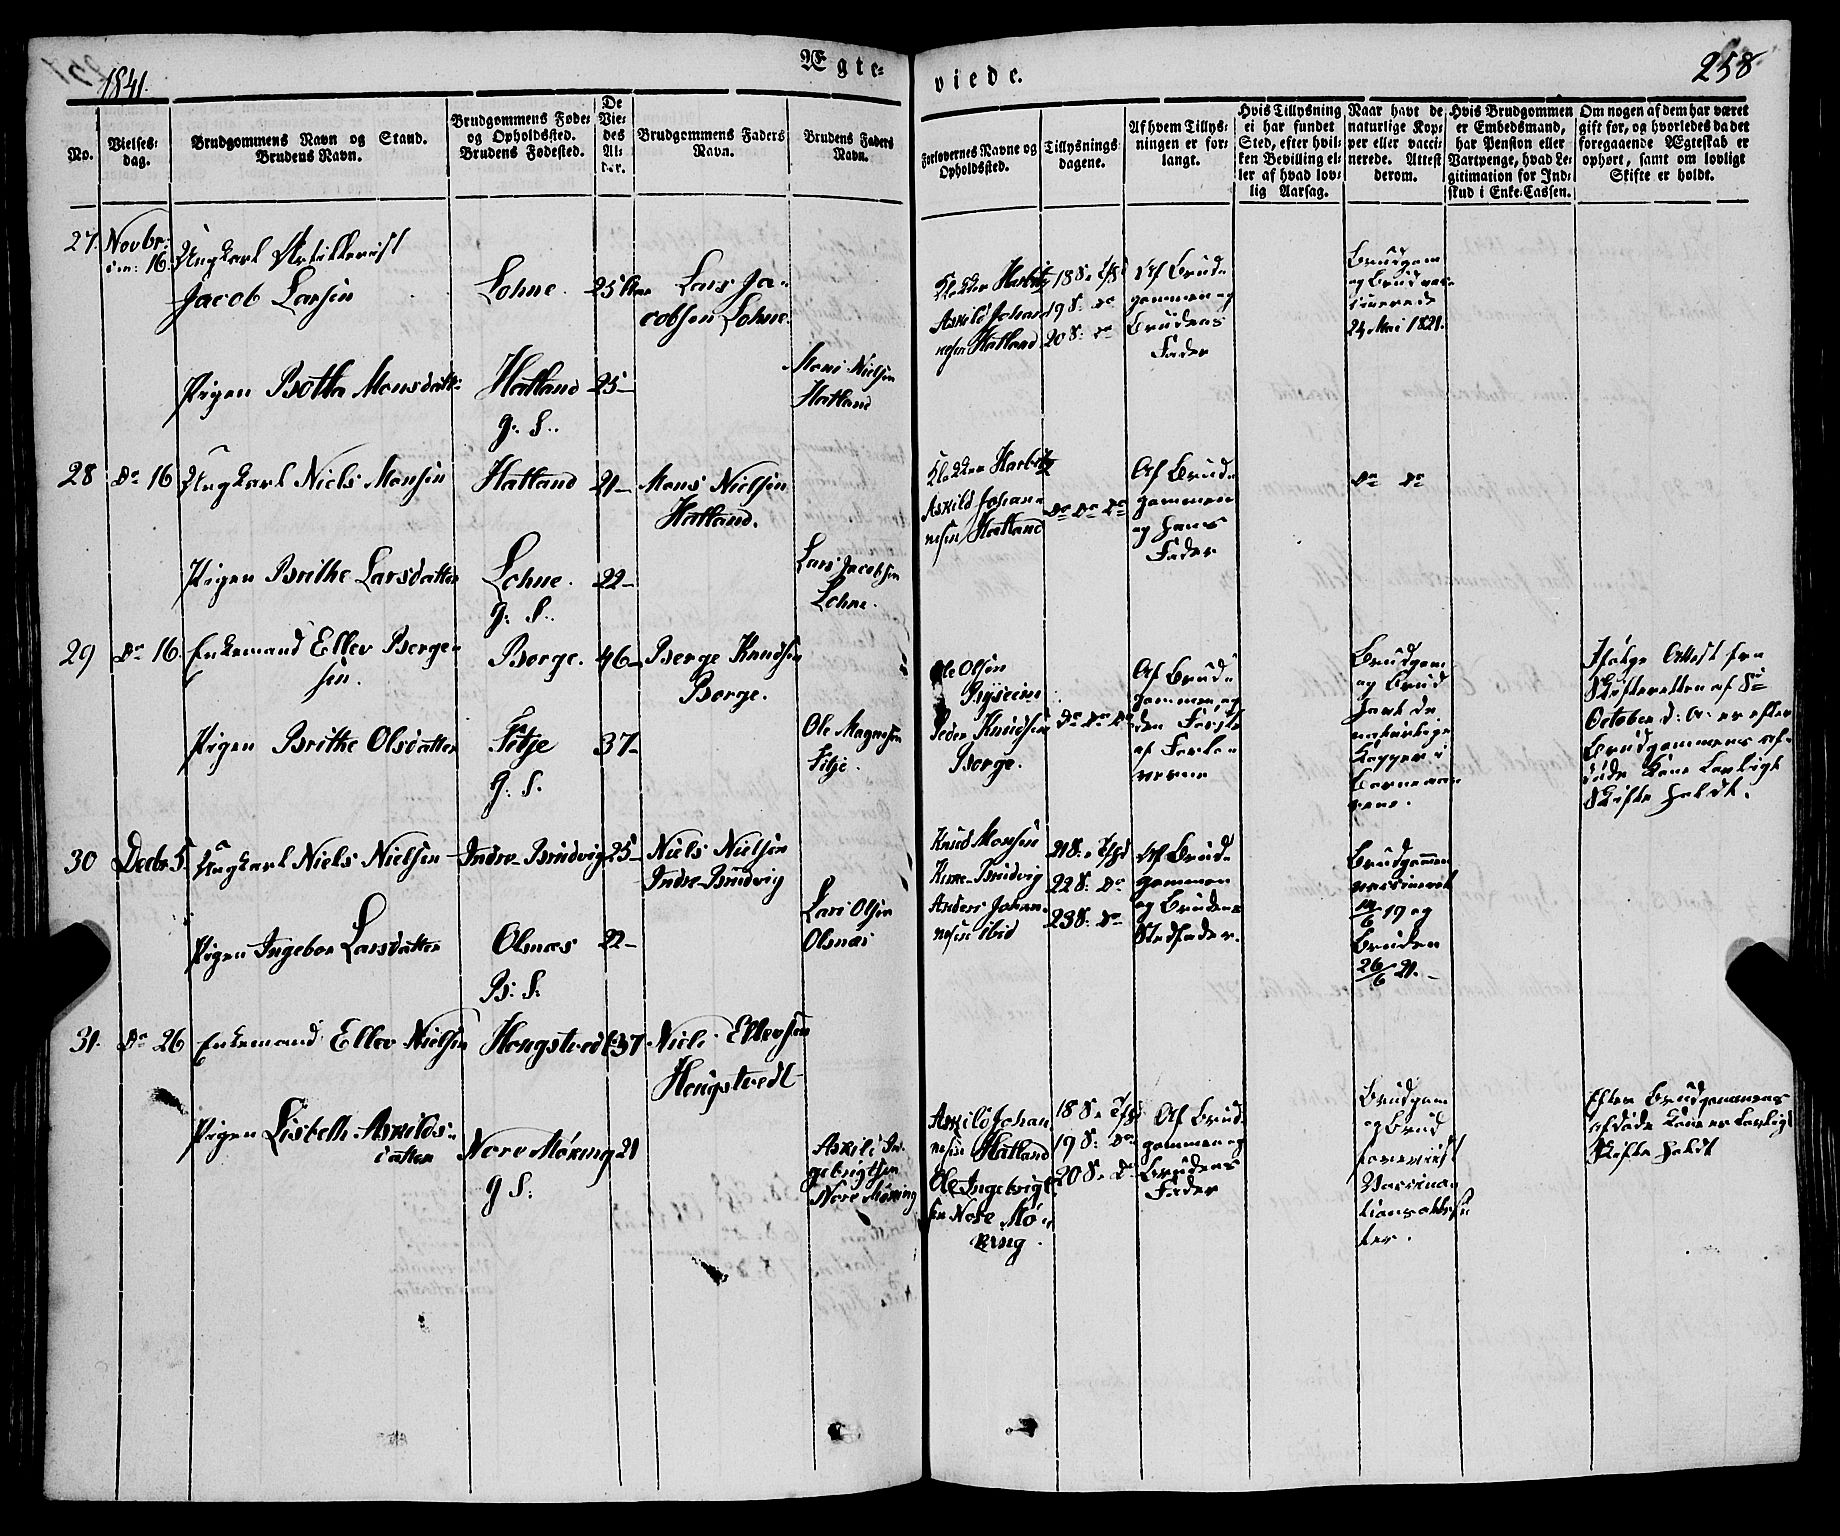 1841.
Ægte-
viede.
258
No.
Vielses-
dag.
Brudgommens Navn og Stand.
Brudens Navn.
Brudgommens Føde-
og Opholdssted.
Brudens Fødested.
De
Vie-
des
Al-
der.
Brudgommens Faders
Navn.
Brudens Faders
Navn.
Forlovernes Navne og
Opholdssted.
Tillysnings
dagene.
Af hvem Tillys-
ningen er for-
langt.
Hvis Tillysning
ei har fundet
Sted, efter hvil-
ken Bevilling el-
ler af hvad lov-
lig Aarsag.
Naar havt de
naturlige Kop-
per eller vacci-
nerede. Attest
derom.
Hvis Brudgommen
er Embedsmand,
har Pension eller
Vartpenge, hvad Le-
gitimation for Ind-
skud i Enke-Cassen.
Om nogen af dem har været
gift før, og hvorledes da det
foregaaende Ægteskab er
ophørt, samt om lovligt
Skifte er holdt.
27.
Novbr:
16.
Ungkarl Artillerist
Jacob Larsen
Lohne.
25 Aar
Lars Ja-
cobsen Lohne.
Klokker Harbitz
Askild Johan-
nesen Hatland
18 S. e. Tr.
19 S: Do
20 S: Do
Af Brud-
gommen og
Brudens
Fader
Brudgom
og Brud vac-
cinerede
24 Mai 1821.
Pigen Botha Monsdatter
Hatland
G: S..
25-
Mons Nielsen
Hatland
28
Do 16
Ungkarl Niels Monsen
Hatland
21-
Mons Nielsen
Hatland.
Klokker Harbitz
Askild Johan-
nesen Hatland
Do Do Do
Af Brud-
gommen
og hans
Fader
Do Do
Pigen Brithe Larsdatter
Lohne.
G: S..
22-
Lars Jacobsen
Lohne.
29
Do 16.
Enkemand Ellev Berge-
sen.
Borge.
46-
Berge Knudsen
Borge.
Ole Olsen
Peder Knudsen
Borge.
Do Do Do
Af Brud-
gommen og
den første
af Forlo-
verne
Brudgom
og Brud
havt de
naturlige
Kopper i
Barneaa-
rene.
Ifølge Attest fra
Skifteretten af 8de
October d: A: er efter
Brudgommens af-
døde Kone lovligt
Skifte holdt.
Pigen Brithe Olsdatter
Fitje
G: S.
37-
Ole Magnesen
Fitje.
30
Decbr 5.
Ungkarl Niels Nielsen
Indre-Brudvig
25-
Niels Nielsen
Indre-Brudvig
Knud Monsen
Brudvig
Anders Johan-
nesen ibid
21 S. e. Tr.
22 S. Do
23 S. Do
Af Brud-
gommen
og Brudens
Stedfader.
Brudgommen
vaccineret
19 og
Bruden
26/6 21.-
Pigen Ingebor Larsdatter
Olsnæs
B: S.
22-
Lars Olsen
Olsnæs
31.
Do 26
Enkemand Ellev Nielsen
Hougstvedt
37
Niels Ellevsen
Hougstvedt
Askild Johan-
nesen Hatland
Ole Ingebrigt-
sen Nore Mø-
kring.
18 S. e. Tr.
19 S. Do
20 S. Do
Af Brud-
gommen og
Brudens
Fader
Brudgom
og Brud
foreviist
Vaccina-
tionsattes-
ter.
Efter Brudgommens
afdøde Kone er lovligt
Skifte holdt
Pigen Lisbeth Askilds-
datter
Nore Møkring
G S:
21
Askild In-
gebrigtsen
Nore Møkring